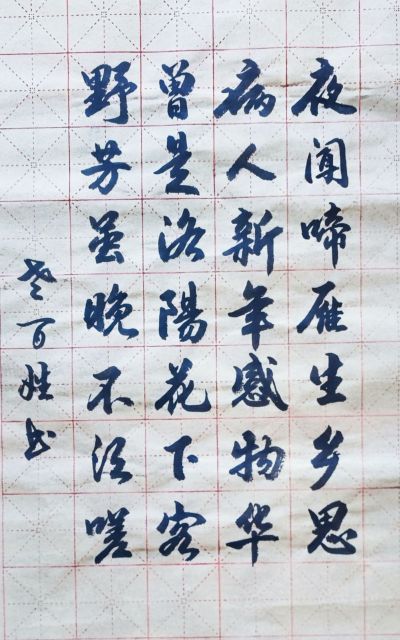 夜闻啼雁生乡思
病人新年感物华
曾是洛陽花下客
野芳虽晚不须嗟
老百姓书